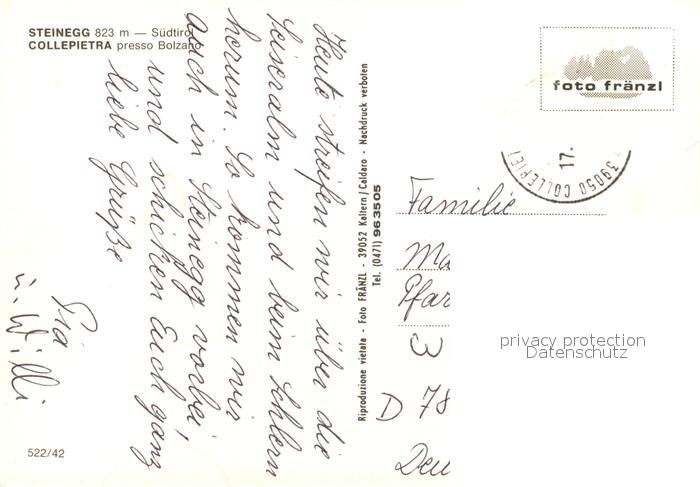 STEINEGG 823 m — Südtirol
COLLEPIETRA presso Bolzano
Heute streifen wir über die
Seiseralm und beim Schlern
herum. So kommen wir
auch in Steinegg vorbei,
und schicken Euch ganz
liebe Grüße
Pia
u. Willi
522/42
Riproduzione vietata - Foto FRÄNZL - 39052 Kaltern / Caldaro - Nachdruck verboten
Tel. (0471) 963505
foto fränzl
17.
39050 COLLEPIET
Familie
Ma
Pfar
3
D 78
Deu
privacy protection
Datenschutz